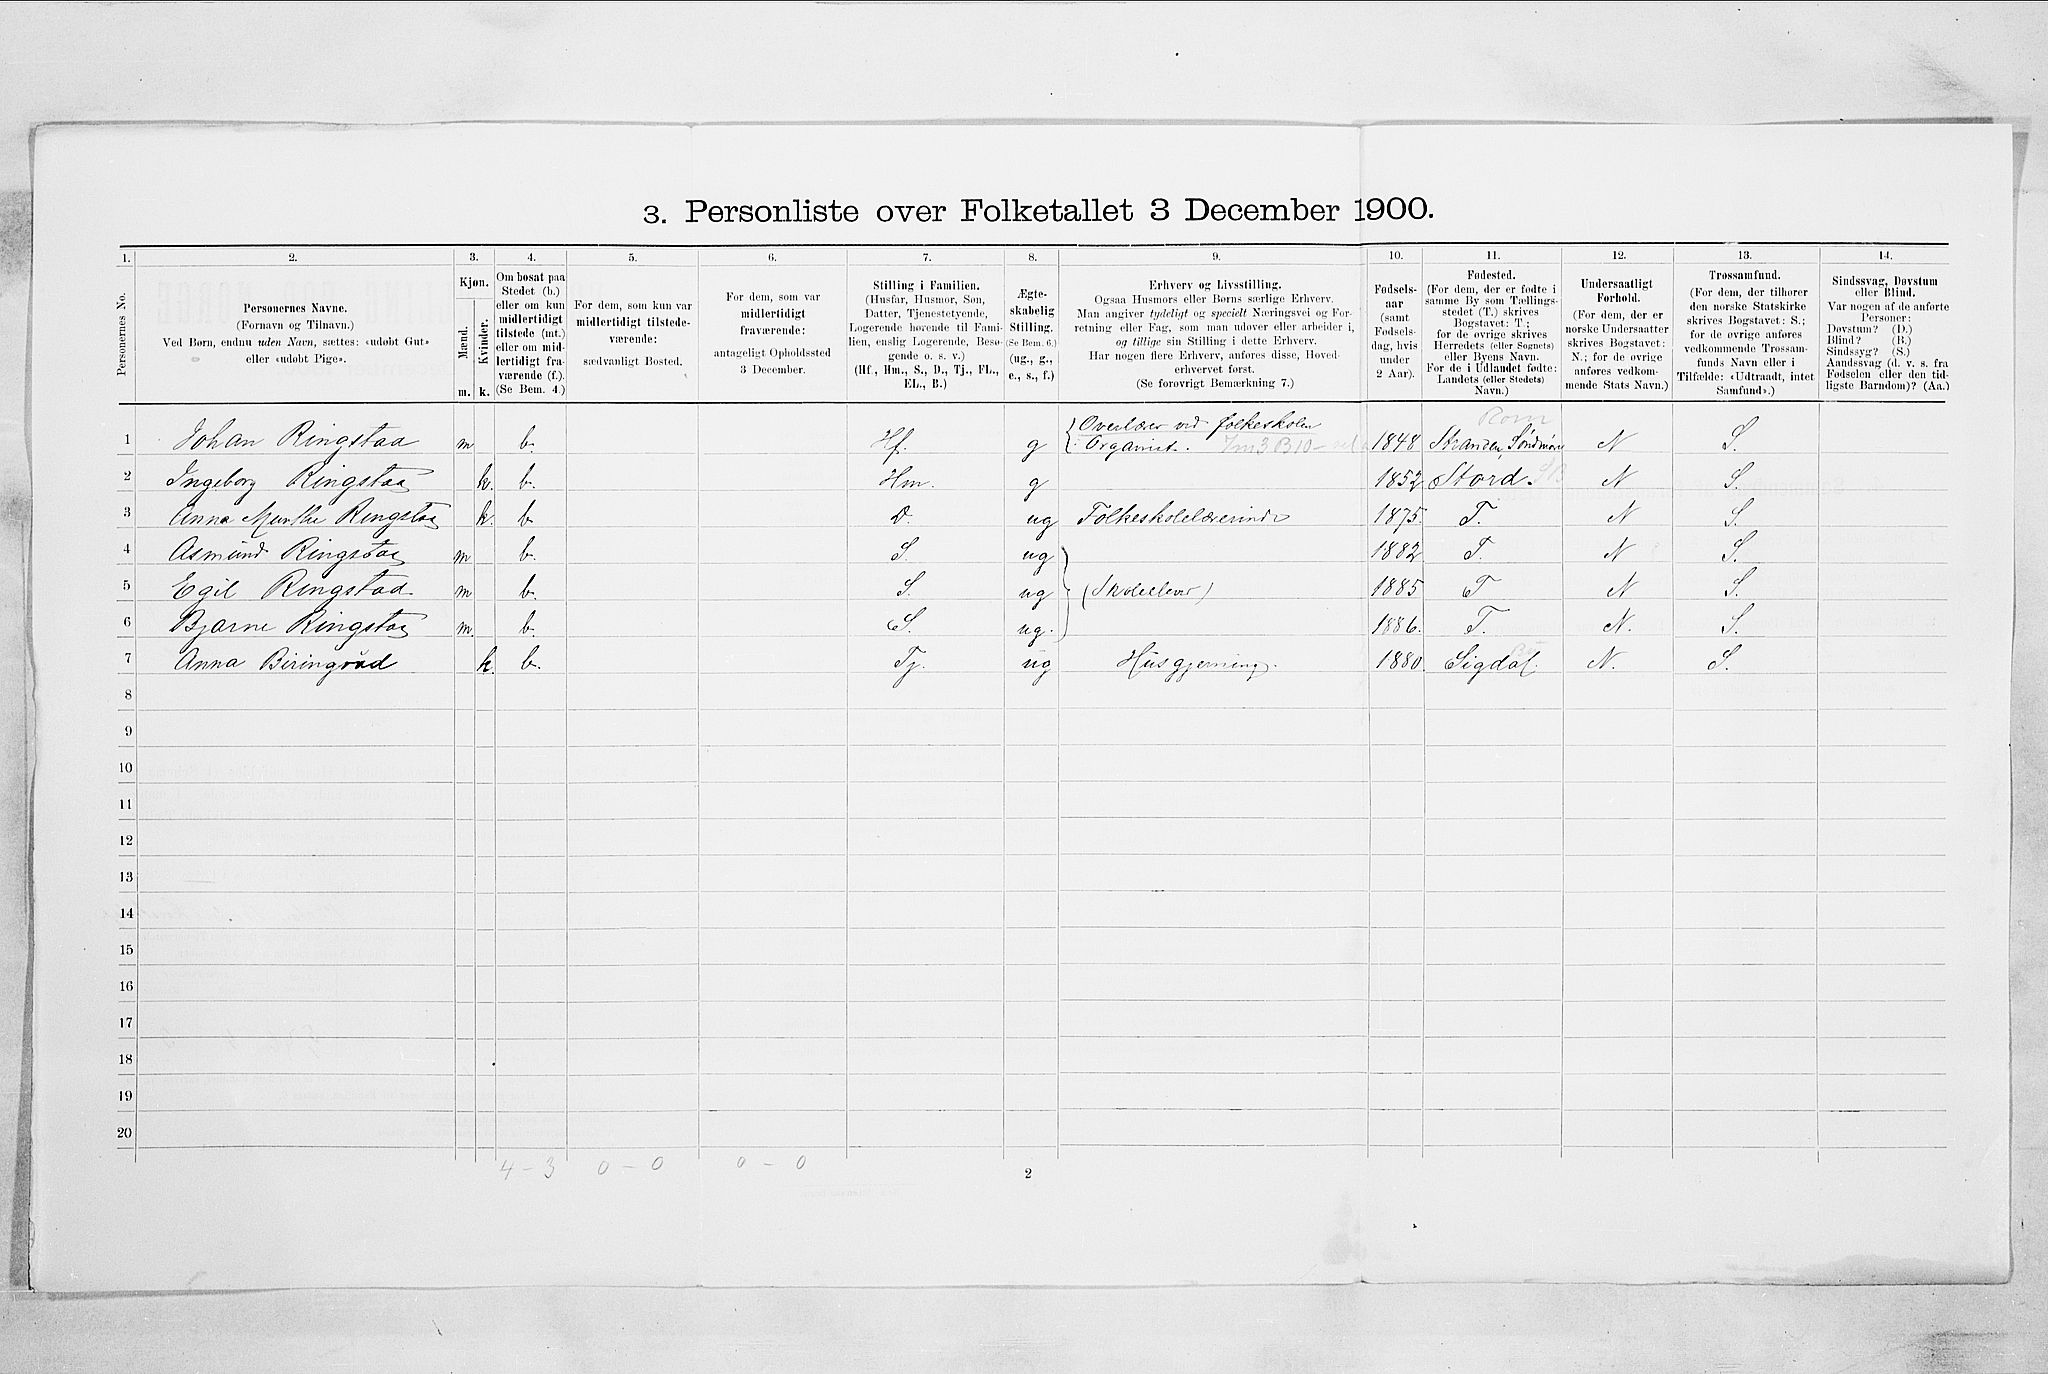 3. Personliste over Folketallet 3 December 1900.
1. 2. 3. 4. 5. 6. 7. 8. 9. 10. 11. 12. 13. 14.
Personernes No.
Personernes Navne.
(Fornavn og Tilnavn.)
Ved Børn, endnu uden Navn, sættes: «udøbt Gut»
eller «udøbt Pige».
Kjøn.
Mænd.
Kvinder.
m. k.
Om bosat paa
Stedet (b.)
eller om kun
midlertidigt
tilstede (mt.)
eller om mid-
lertidigt fra-
værende (f.)
(Se Bem. 4.)
For dem, som kun var
midlertidigt tilstede-
værende:
sædvanligt Bosted.
For dem, som var
midlertidigt
fraværende:
antageligt Opholdssted
3 December.
Stilling i Familien.
(Husfar, Husmor, Søn,
Datter, Tjenestetyende,
Logerende hørende til Fami-
lien, enslig Logerende, Besø-
gende o. s. v.)
(Hf., Hm., S., D., Tj., FL.,
EL., B.)
Ægte-
skabelig
Stilling.
(Se Bem. 6.)
(ug., g.,
e., s., f.)
Erhverv og Livsstilling.
Ogsaa Husmors eller Børns særlige Erhverv.
Man angiver tydeligt og specielt Næringsvei og For-
retning eller Fag, som man udøver eller arbeider i,
og tillige sin Stilling i dette Erhverv.
Har nogen flere Erhverv, anføres disse, Hoved-
erhvervet først.
(Se forøvrigt Bemærkning 7.)
Fødsels-
aar
(samt
Fødsels-
dag, hvis
under
2 Aar).
Fødested.
(For dem, der er fødte i
samme By som Tællings-
stedet (T.) skrives
Bogstavet: T.;
for de øvrige skrives
Herredets (eller Sognets)
eller Byens Navn.
For de i Udlandet fødte:
Landets (eller Stedets)
Navn.)
Undersaatligt
Forhold.
(For dem, der er
norske Undersaatter
skrives Bogstavet:
N.; for de øvrige
anføres vedkom-
mende Stats Navn.)
Trossamfund.
(For dem, der tilhører
den norske Statskirke
skrives Bogstavet: S.;
for de øvrige anføres
vedkommende Trossam-
funds Navn eller i
Tilfælde: «Udtraadt, intet
Samfund».)
Sindssvag, Døvstum
eller Blind.
Var nogen af de anførte
Personer:
Døvstum? (D.)
Blind? (B.)
Sindssyg? (S.)
Aandssvag (d. v. s. fra
Fødselen eller den tid-
ligste Barndom)? (Aa.)
Rom
Overlærer ved folkeskolen
1 Johan Ringstad m b. Hf. g Organist. 1848 Stranden Søndmøre N S.
2 Ingeborg Ringstad k. b. Hm. g 1852 Stord. N S.
3 Anna Ringstad k. b. D. ug Folkeskolelærerinde 1875. T. N S.
4 Asmund Ringstad m b. S. ug 1882 T. N S.
5 Egil Ringstad m b. S. ug (Skoleelever) 1885 T N S.
6 Bjarne Ringstad m. b. S. ug. 1886. T. N. S.
7 Anna k. b. Tj. ug Husgjerning. 1880. Sigdal. N. S.
8
9
10
11
12
13
14
15
16
17
18
19
20
4 – 3 0 – 0 0 – 0
2